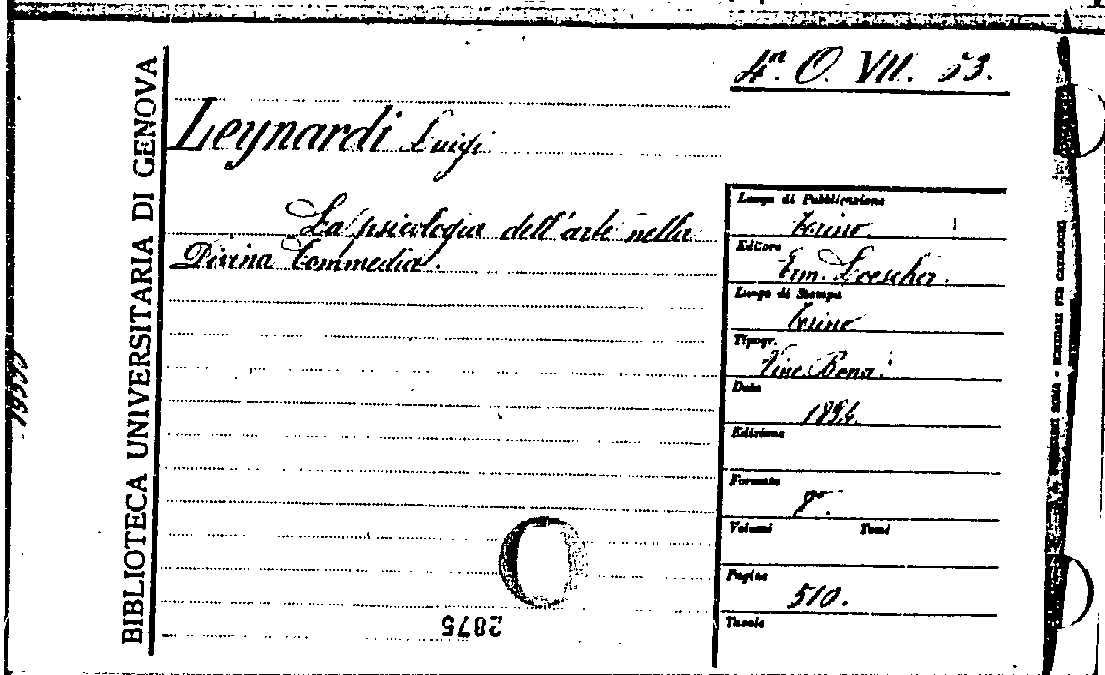 4ª. O. VII. 53.
BIBLIOTECA UNIVERSITARIA DI GENOVA
Leynardi Luigi
La psicologia dell'arte nella
Divina Commedia.
Luogo di Pubblicazione
Torino
Editore
Erm. Loescher.
Luogo di Stampa
Torino
Tipogr.
Vinc. Bona.
Data
1894.
Edizione
Formato
8º.
Volumi Tomi
Pagine
510.
Tavole
2875